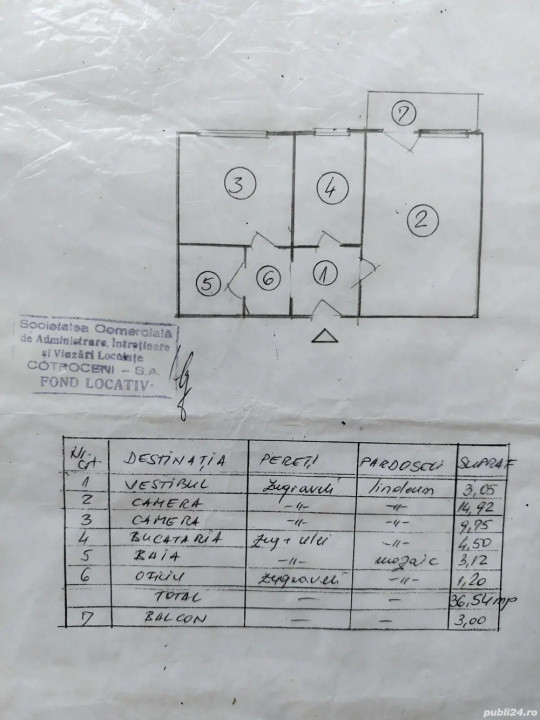 7
3
4
2
5
6
1
Societatea Comercială
de Administrare, Întreținere
și Vînzări Locuințe
COTROCENI - S.A.
FOND LOCATIV
Nr. crt DESTINAȚIA PEREȚI PARDOSELI SUPRAF
1 VESTIBUL zugraveli linoleum 3,05
2 CAMERA -"- -"- 14,92
3 CAMERA -"- -"- 9,75
4 BUCATARIA zugr ulei -"- 4,50
5 BAIA -"- mozaic 3,12
6 OFICIU zugraveli -"- 1,20
TOTAL — — 36,54 mp
7 BALCON — — 3,00
publi24.ro